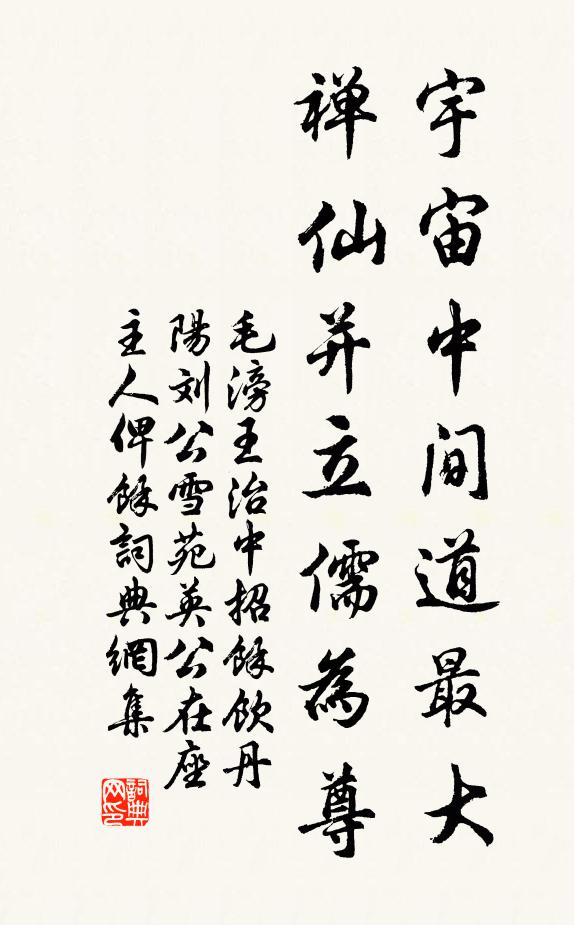 宇宙中间道最大
禅仙并立儒為尊
毛滂王治中招餘飲丹
陽刘公雪苑英公在座
主人俾餘詞典網集
詞典网印